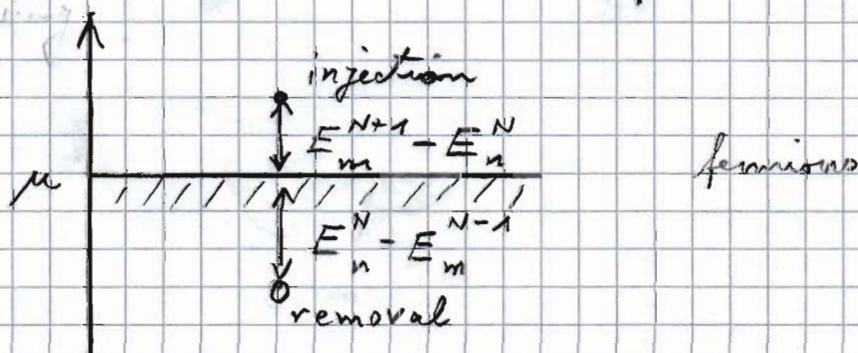 injection
E_m^{N+1} - E_n^N
μ
fermions
E_n^N - E_m^{N-1}
removal